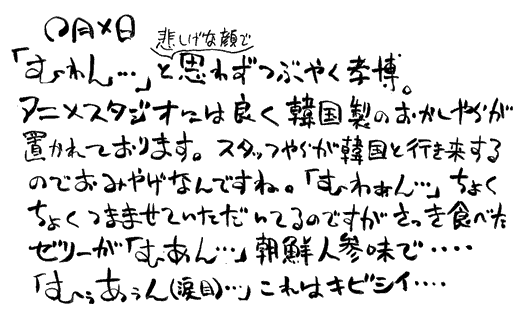 〇月×日
悲しげな顔で
「むわん…」と思わずつぶやく孝博。
アニメスタジオには良く韓国製のおかしやらが
置かれております。スタッフやらが韓国と行き来する
のでおみやげなんですね。「むわぁん…」ちょく
ちょくつまませていただいてるのですがさっき食べた
ゼリーが「むあん…」朝鮮人参味で‥‥
「むぅあぅん(涙目)…」これはキビシイ‥‥